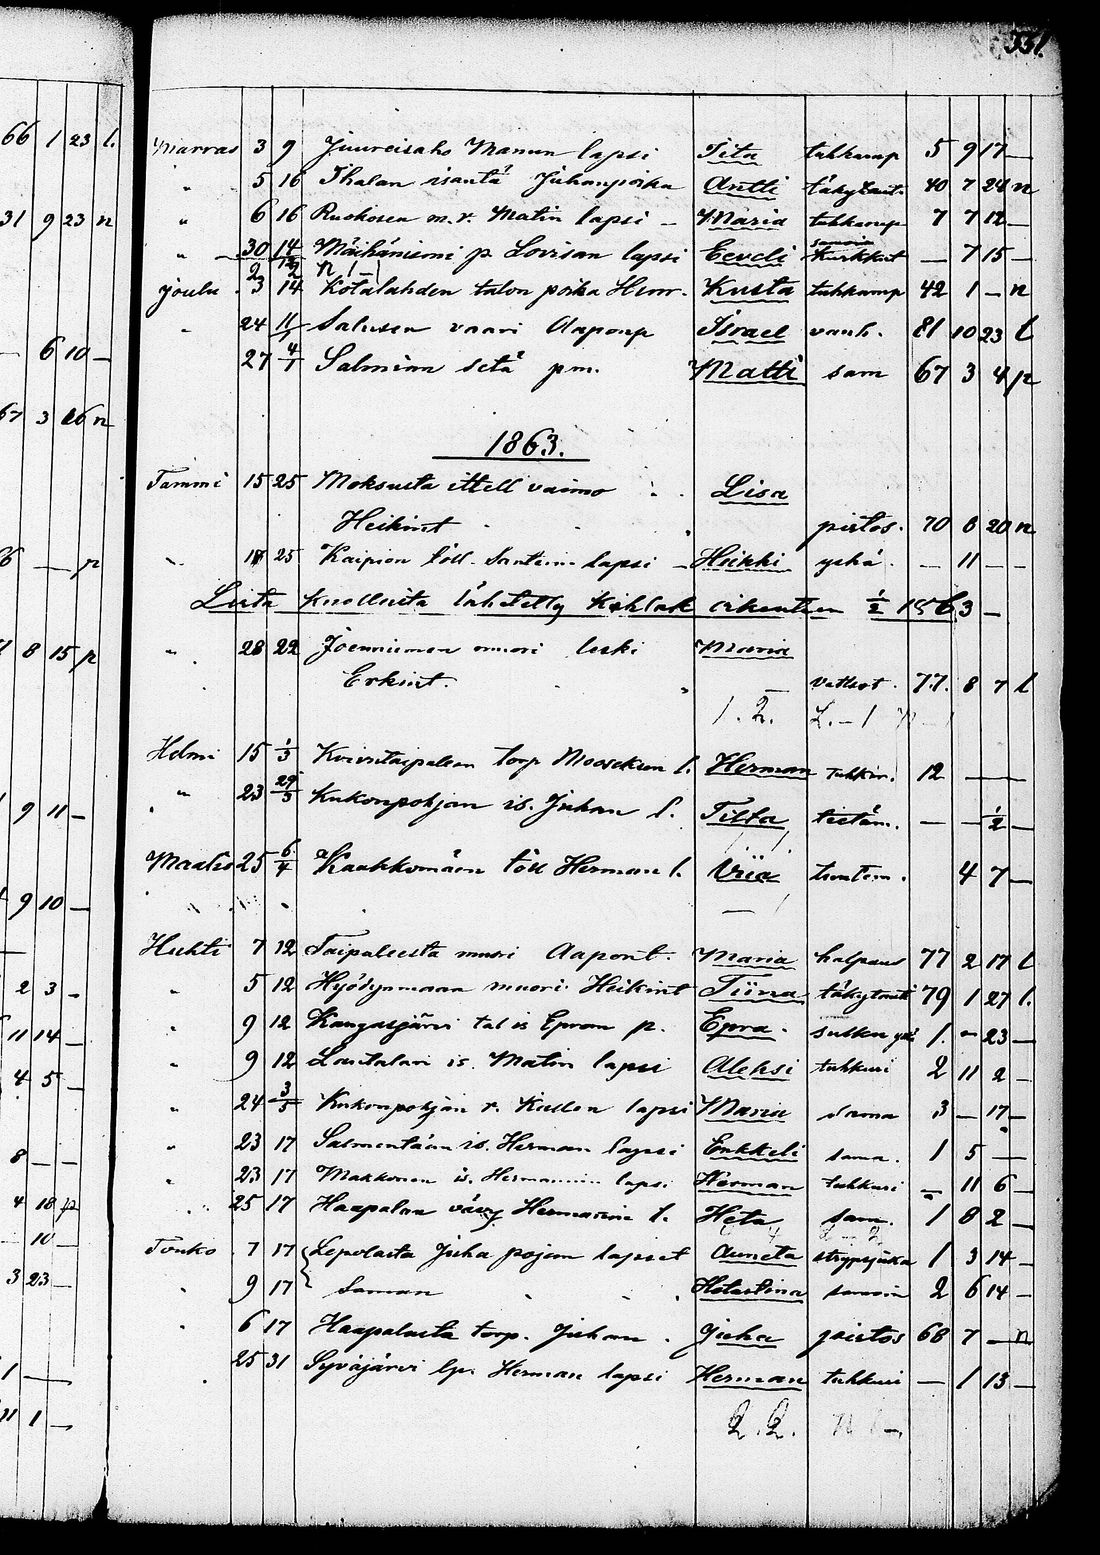 331.
66 1 23 l.
Marras 3 9 Juureisaho Manun lapsi Tita tuhkurup 5 9 17 —
" 5 16 Ihalan isäntä Juhanpoika Antti täkytaut. 40 7 24 n
31 9 23 n
" 6 16 Ruohosen m.v. Matin lapsi — Maria tuhkarup 7 7 12 —
" 30 14/12 Mäihäniemi p Lovisan lapsi Eeveli kurkkut — 7 15 —
Joulu 3 14 Kotalahden talon poika Henr. Kusta tuhkarup 42 1 — n
" 24 11/1 Salusen vaari Aaponp Israel vanh. 81 10 23 l
— 6 10 —
27 4/1 Salmisen setä pm. Matti sam 67 3 4 p
67 3 26 n
1863.
Tammi 15 25 Moksusta ittell vaimo Lisa
Heikint pistos. 70 6 20 n
" 18 25 Kaipion töll. lapsi — Heikki yskä. — 11 — —
— — p
Lista kuolluista lähetetty 1/2 1863 —
8 15 p
" 28 22 Joenniemen muori leski Maria
Erkint. vatsat. 77. 8 7 l
1. 2. 2. — 1 n — 1
Helmi 15 1/3 torp l. Herman tuhkur. 12 — —
" 23 29/3 Kukonpohjan is. Juhan l. Tilta tietäm. — — 1/2 —
9 11 —
Maalis 25 6/4 Kaakkomäen töll Herman l. Viia tuntem. 4 7 —
9 10 —
Huhti 7 12 Taipaleesta muori Aapont. Maria halpaus 77 2 17 l
" 5 12 Hyödynmaan muori Heikint Tiina täkytauti 79 1 27 l.
2 3 —
" 9 12 Kangasjärvi tal is Epran p. Epra. 1. — 23 —
11 14 —
" 9 12 Lautalan is. Matin lapsi Aleksi tuhkuri 2 11 2 —
4 5 —
" 24 3/5 Kukonpohjan r. Kustan lapsi Maria sama 3 — 17 —
" 23 17 Salmentään is. Herman lapsi Enkkeli sama. 1 5 —
8 — —
" 23 17 Makkonen is. Hermannin lapsi Herman tuhkuri — 11 6 —
4 18 p
25 17 Haapalan vävy Hermannin l. Heta sam. 1 8 2 —
10 —
Touko 7 17 Lepolasta Juha pojan lapset Auneta 1 3 14 —
3 23 —
" 9 17 Saman Hetastina samoin 2 6 14 —
" 6 17 Haapalasta torp. Juhan Juha pistos 68 7 — n
25 31 Syväjärvi lp. Herman lapsi Herman tuhkuri — 1 13 —
1 —
11 1 —
2. 2.